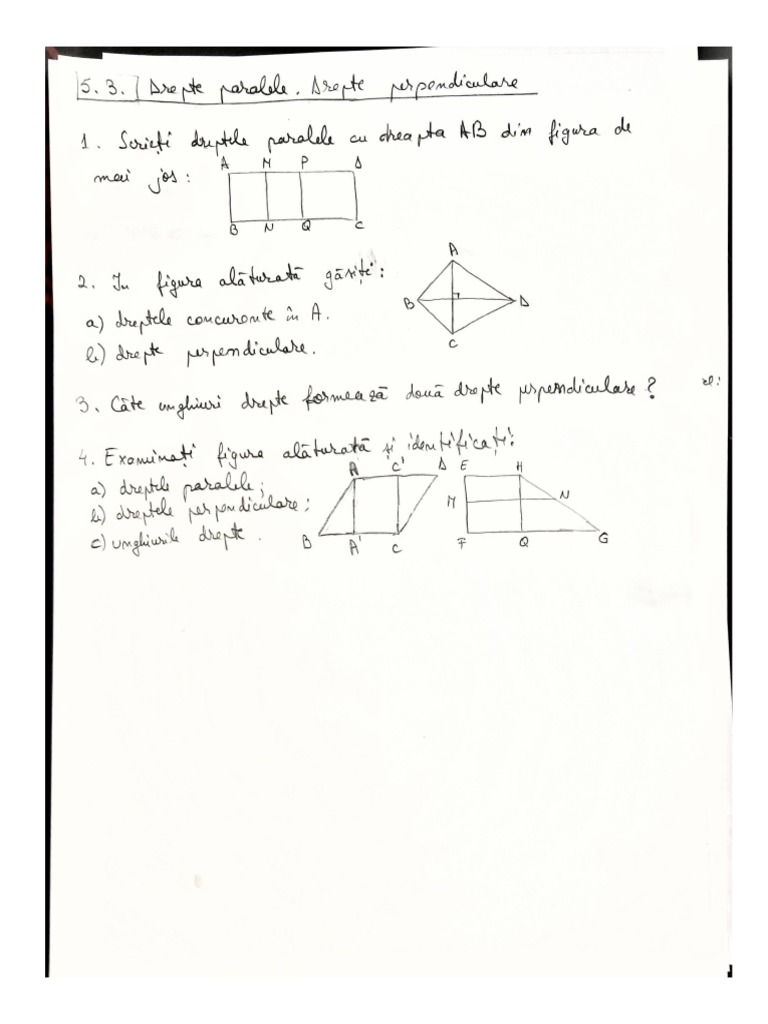 5.3. Drepte paralele. Drepte perpendiculare
1. Scrieți dreptele paralele cu dreapta AB din figura de
mai jos:
A M P D
B N Q C
2. In figura alăturată găsiți:
a) dreptele concurente în A.
b) drepte perpendiculare.
A
B D
C
3. Câte unghiuri drepte formează două drepte perpendiculare?
4. Examinați figura alăturată și identificați:
a) dreptele paralele;
b) dreptele perpendiculare;
c) unghiurile drepte.
A C' D
B A' C
E H
M N
F Q G